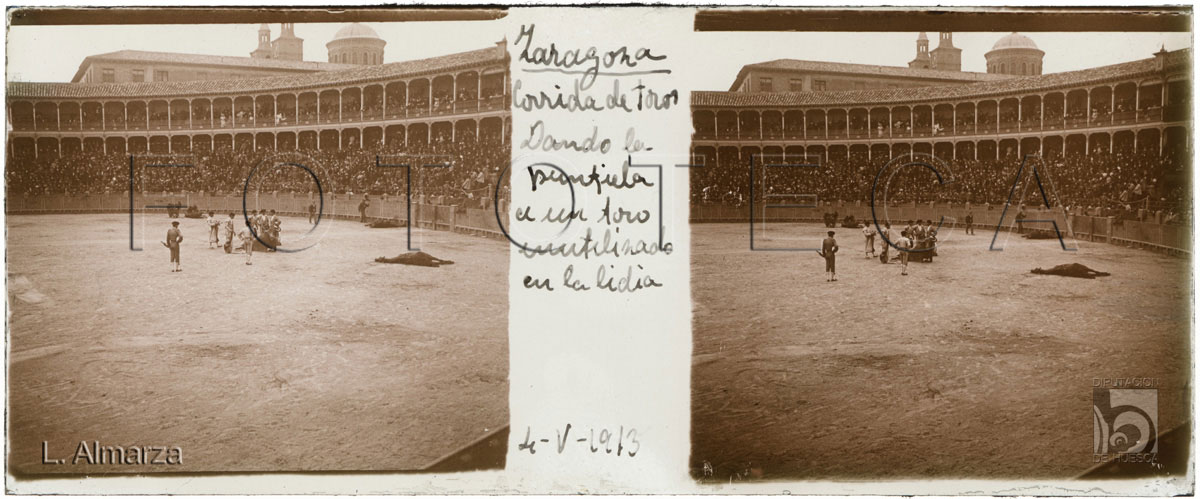 Zaragoza
Corrida de toros
Dando la
puntiela
a un toro
inutilizado
en la lidia
4-V-1913
FOTOTECA
L. Almarza
DIPUTACIÓN
DE HUESCA